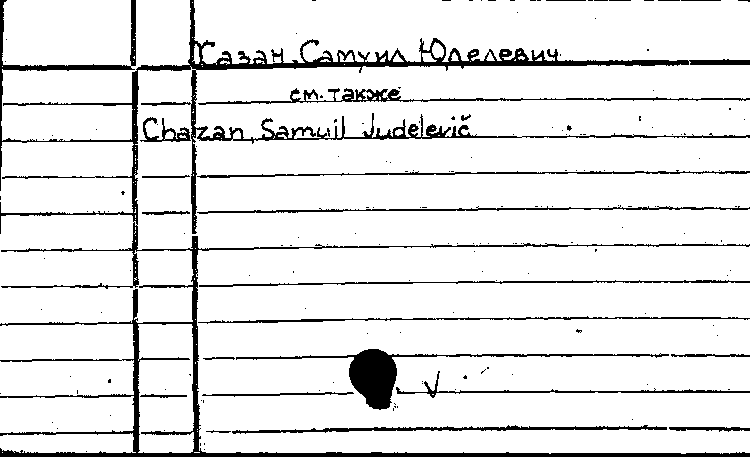 Хазан, Самуил Юделевич
см. также
Chazan, Samuil Judelevič
V